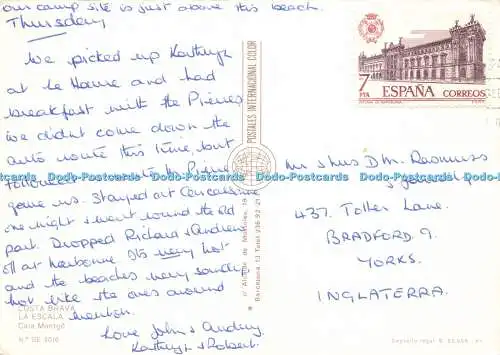 our camp site is just above this beach.
Thursday
We picked up Kathryn
at Le Mans and had
breakfast with the
We didn't come down the
auto route this time, but
followed the
gave us. Stayed at Carcassonne
one night & went round the old
part. Dropped Richard & Andrew
off at Narbonne. Its very hot
and the beaches very sandy
not like the ones around
Menton.
Love John & Audrey
Kathryn & Robert.
COSTA BRAVA
LA ESCALA
Cala Montgó
N.º SE 3016
POSTALES INTERNACIONAL COLOR
7
PTA
ESPAÑA
CORREOS
Mr & Mrs D M
437. Toller Lane.
BRADFORD 9.
YORKS.
INGLATERRA.
Depósito legal B.
Dodo-Postcards Dodo-Postcards Dodo-Postcards Dodo-Postcards